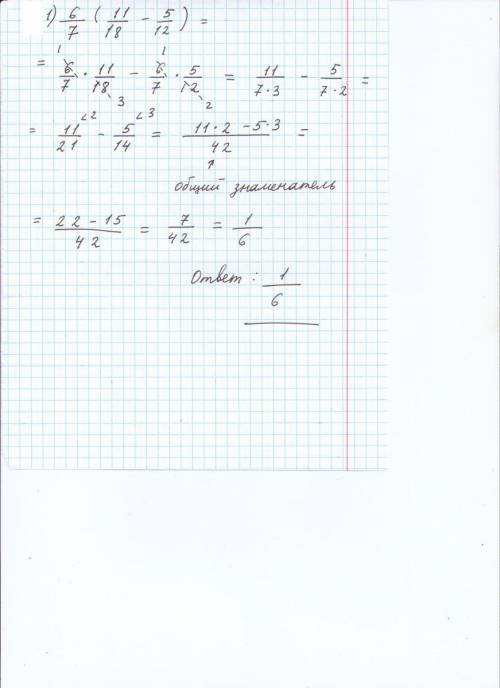 1) 6/7 ( 11/18 − 5/12 ) =
= 6/7 · 11/18 − 6/7 · 5/12 = 11/7·3 − 5/7·2 =
1 1
3 2
= 11/21 − 5/14 = 11·2 − 5·3/42 =
2 3
общий знаменатель
= 22 − 15/42 = 7/42 = 1/6
Ответ : 1/6